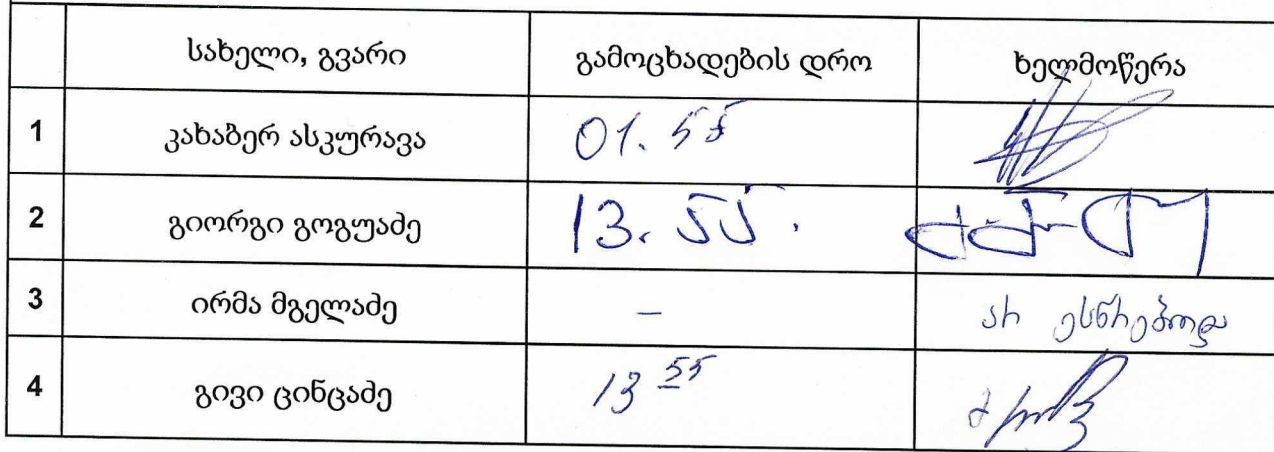 სახელი, გვარი გამოცხადების დრო ხელმოწერა
1 კახაბერ ასკურავა 01. 55
2 გიორგი გოგუაძე 13. 55.
3 ირმა მგელაძე – არ ესწრებოდა
4 გივი ცინცაძე 13 55